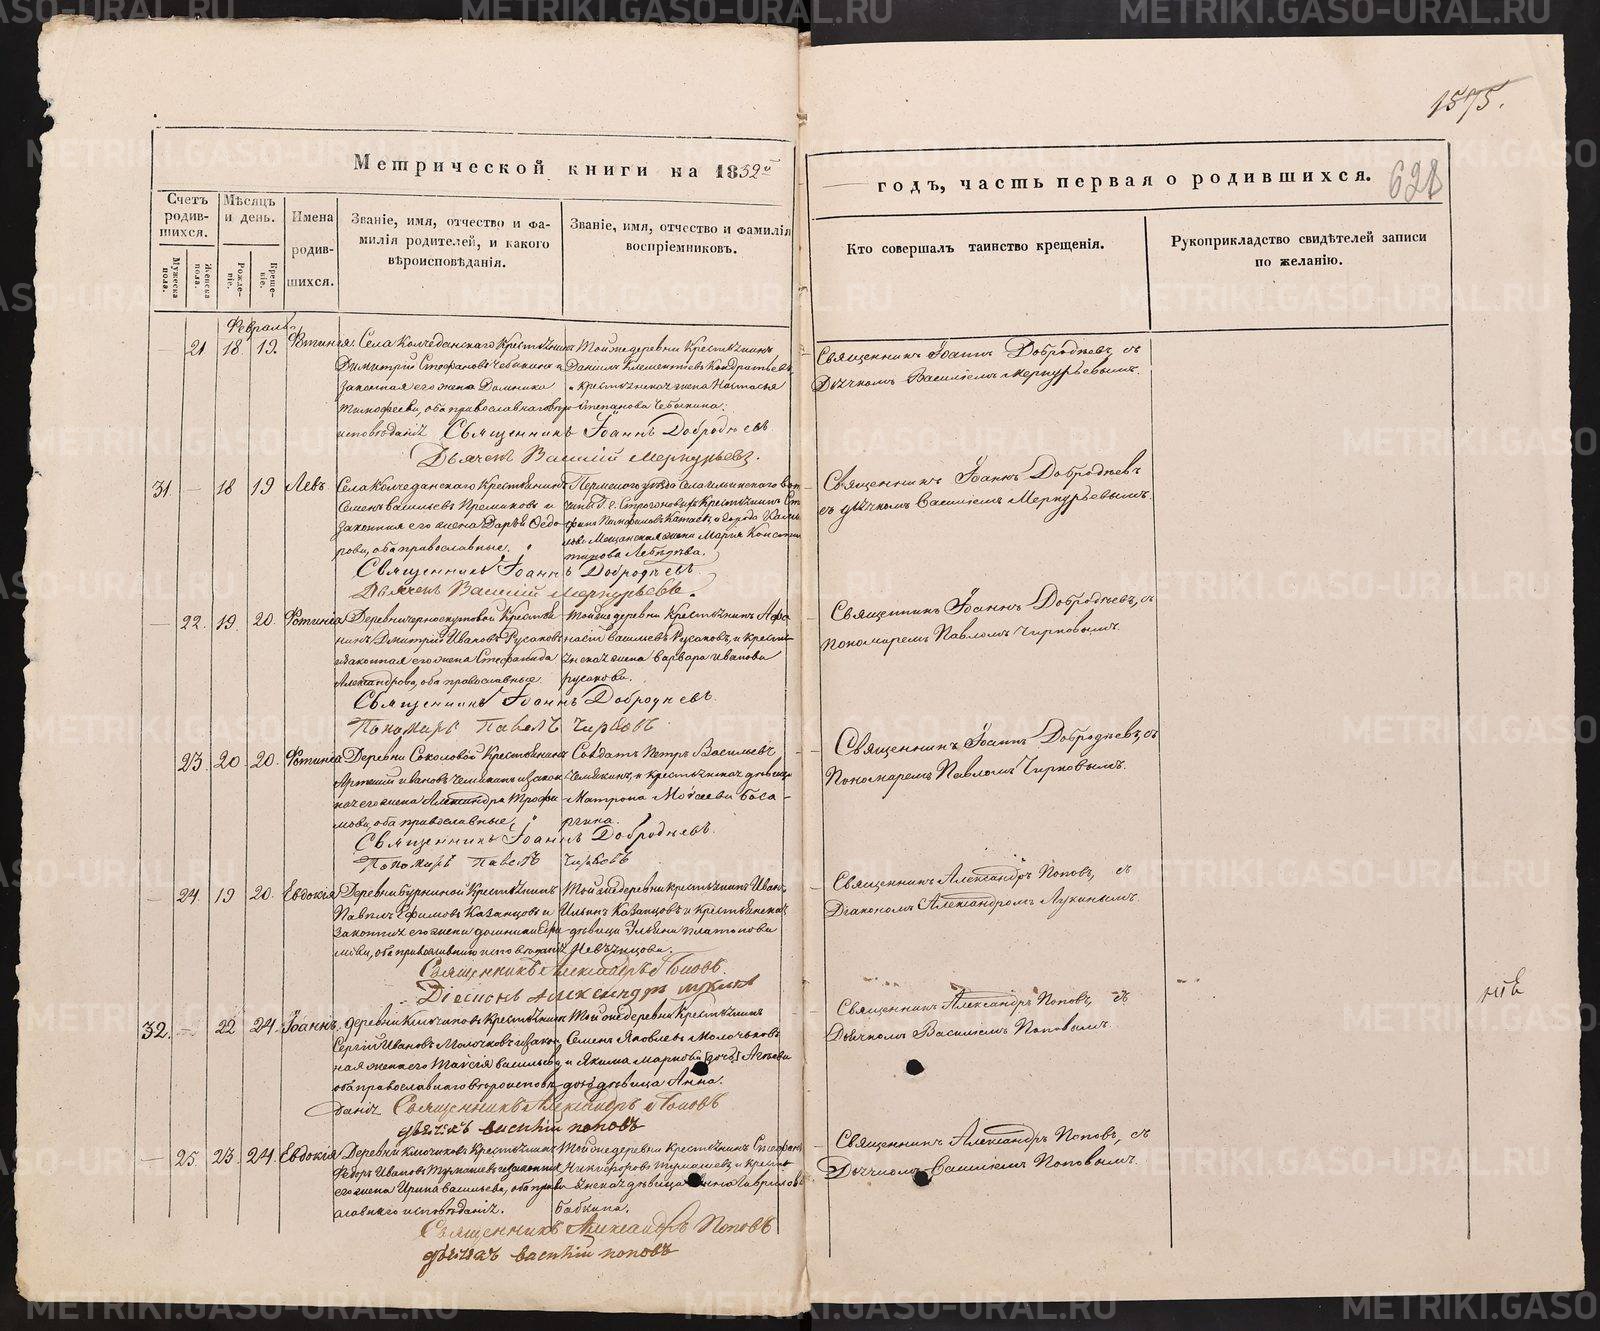 1575.
Метрической книги на 1852й
годъ, часть первая о родившихся.
628
Счетъ родившихся.
Мѣсяцъ и день.
Имена родившихся.
Званіе, имя, отчество и фамилія родителей, и какого вѣроисповѣданія.
Званіе, имя, отчество и фамилія воспріемниковъ.
Кто совершалъ таинство крещенія.
Рукоприкладство свидѣтелей записи по желанію.
Мужеска пола.
Женска пола.
Рожденіе.
Крещеніе.
Февраль
21 18 19. Фотинія. Села Колчеданскаго Крестьянинъ
Димитрій Стефановъ Чебыкинъ и
законная его жена Домника
Тимофеева, оба православнаго
исповѣданія
Тойже деревни Крестьянинъ
Даніилъ Клементьевъ Кондратьевъ
и крестьянская жена Настасья
Степанова Чебыкина.
Священникъ Іоаннъ Добродѣевъ.
Дьячекъ Василій Меркурьевъ.
Священникъ Іоаннъ Добродѣевъ, съ
Дьячкомъ Василіемъ Меркурьевымъ.
31 — 18 19 Левъ. Села Колчеданскаго Крестьянинъ
Семенъ Васильевъ и
законная его жена Дарья Ѳедорова, оба православные.
Пермскаго уѣзда Села Ильинскаго
Крестьянинъ
Мещанская жена Марія
Священникъ Іоаннъ Добродѣевъ
Дьячекъ Василій Меркурьевъ.
Священникъ Іоаннъ Добродѣевъ
съ дьячкомъ Василіемъ Меркурьевымъ.
— 22. 19. 20. Фотинія Деревни Черноскутовой Крестьянинъ Дмитрій Ивановъ Русаковъ
и законная его жена Стефанида
Александрова, оба православные.
Тойже деревни Крестьянинъ Афанасій Васильевъ Русаковъ, и крестьянская жена Варвара Иванова
Русакова.
Священникъ Іоаннъ Добродѣевъ.
Пономарь Павелъ Чирковъ.
Священникъ Іоаннъ Добродѣевъ, съ
пономаремъ Павломъ Чирковымъ.
23. 20 20. Фотинія Деревни Соколовой Крестьянинъ
Артемій Ивановъ Чемякинъ и законная его жена Александра Трофимова, оба православные.
Солдатъ Петръ Васильевъ
Чемякинъ, и крестьянская дѣвица
Матрона Моѵсеева Басаргина.
Священникъ Іоаннъ Добродѣевъ.
Пономарь Павелъ Чирковъ
Священникъ Іоаннъ Добродѣевъ, съ
Пономаремъ Павломъ Чирковымъ.
— 24. 19 20. Евдокія Деревни Бурниной Крестьянинъ
Павелъ Ефимовъ Казанцовъ и
Тойже деревни крестьянинъ Иванъ
Ильинъ Казанцовъ и крестьянская
дѣвица Платонова
Священникъ Александръ Поповъ.
Діаконъ Александръ Лукинъ
Священникъ Александръ Поповъ, съ
Діакономъ Александромъ Лукинымъ.
32. — 22 24. Іоаннъ. Деревни Ключиковъ Крестьянинъ
Сергій Ивановъ Молочковъ и законная жена его Таисія Васильева,
оба православнаго вѣроисповѣданія
Тойже деревни Крестьянинъ
Семенъ Яковлевъ Молочковъ
и Якима Маркова дочь
дѣвица Анна.
Священникъ Александръ Поповъ
дьячекъ Василій Поповъ
Священникъ Александръ Поповъ, съ
Дьячкомъ Василіемъ Поповымъ.
— 25. 23 24. Евдокія Деревни Ключиковъ Крестьянинъ
Ѳедоръ Ивановъ и законная
его жена Ирина Васильева, оба православнаго исповѣданія.
Тойже деревни Крестьянинъ Стефанъ
Никифоровъ и крестьянская дѣвица Гаврилова
Бабкина.
Священникъ Александръ Поповъ
дьячекъ Василій Поповъ
Священникъ Александръ Поповъ, съ
Дьячкомъ Василіемъ Поповымъ.
METRIKI.GASO-URAL.RU